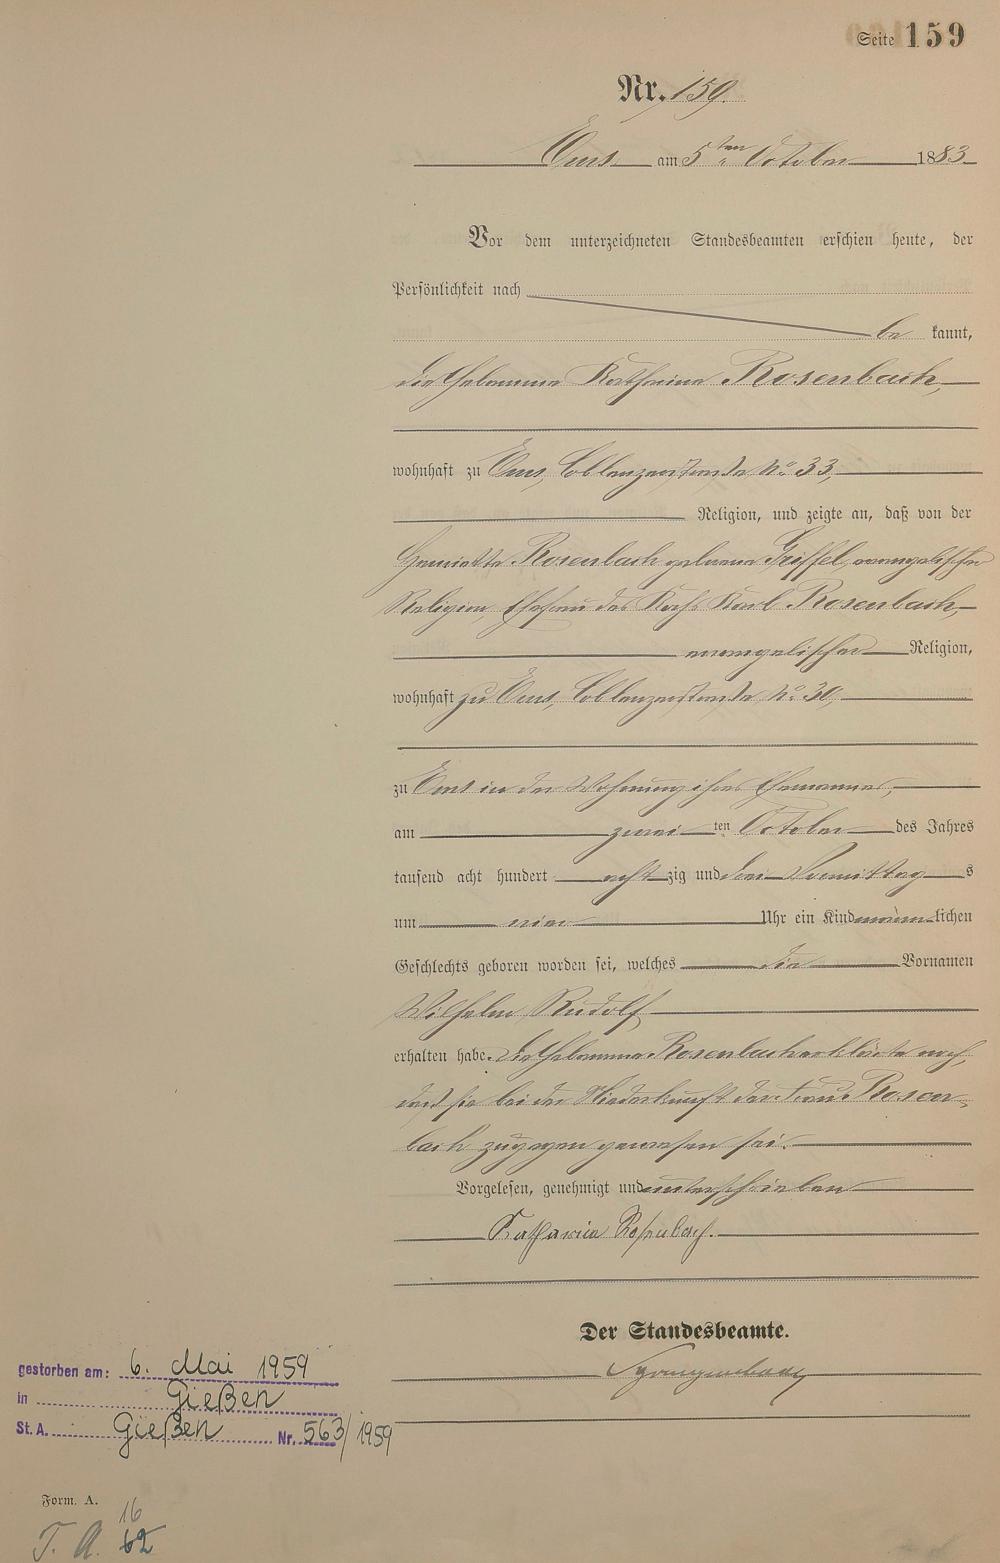 Seite 159
Nr. 159.
Ems am 5ten October 1883
Vor dem unterzeichneten Standesbeamten erschien heute, der
Persönlichkeit nach
be kannt,
die Hebamme Katharina Rosenbach,
wohnhaft zu Ems, Coblenzerstraße No. 33,
Religion, und zeigte an, daß von der
Henriette Rosenbach geborene Griffel, evangelischer
Religion, Ehefrau des Kochs Karl Rosenbach,
evangelischer Religion,
wohnhaft zu Ems, Coblenzerstraße No. 30,
zu Ems in der Wohnung ihres Ehemannes,
am zwei ten October des Jahres
tausend acht hundert acht zig und drei Vormittag s
um Uhr ein Kind männ lichen
Geschlechts geboren worden sei, welches die Vornamen
Wilhelm Rudolf
erhalten habe. Die Hebamme Rosenbach erklärte noch,
daß sie bei der Niederkunft der Frau Rosen-
bach zugegen gewesen sei.
Vorgelesen, genehmigt und unterschrieben
Katharina Rosenbach.
Der Standesbeamte.
gestorben am: 6. Mai 1959
in Gießen
St. A. Gießen Nr. 563/1959
Form. A.
16
T. A. 62